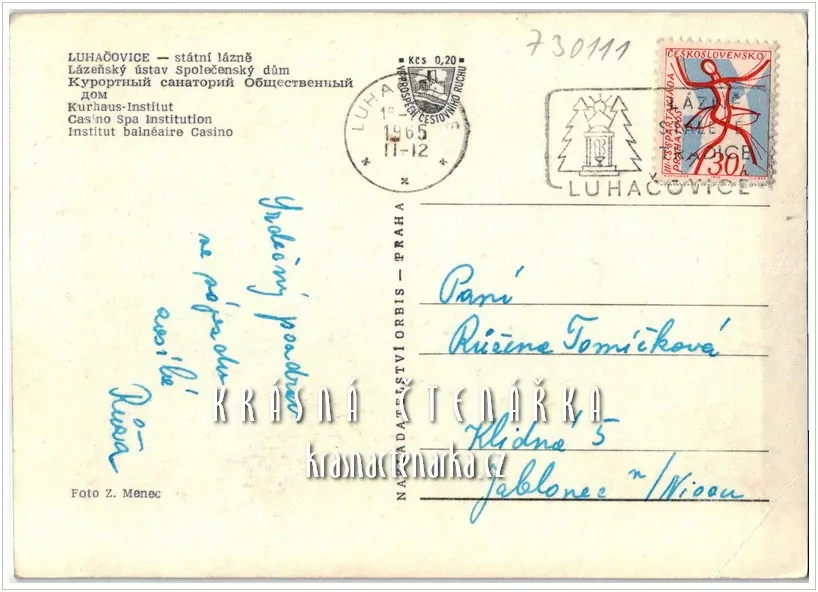 LUHAČOVICE — státní lázně
Lázeňský ústav Společenský dům
Курортный санаторий Общественный
дом
Kurhaus-Institut
Casino Spa Institution
Institut balnéaire Casino
Kčs 0,20
VE PROSPĚCH CESTOVNÍHO RUCHU
LUHA
1965
11-12
730111
ČESKOSLOVENSKO
III. CS. SPARTAKIÁDA
PRAHA 1965
30h
LÁZNĚ
STALETÉ
TRADICE
LUHAČOVICE
Srdečný pozdrav
ze zájezdu
zasílá
Růža
NAKLADATELSTVÍ ORBIS — PRAHA
Paní
Růžena Tomíčková
Klidná 5
Jablonec n/Nisou
KRÁSNÁ ČTENÁŘKA
krasnactenarka.cz
Foto Z. Menec